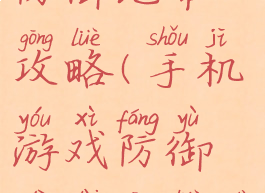 gōng lüè shǒu jī
攻略(手机
yóu xì fáng yù
游戏防御